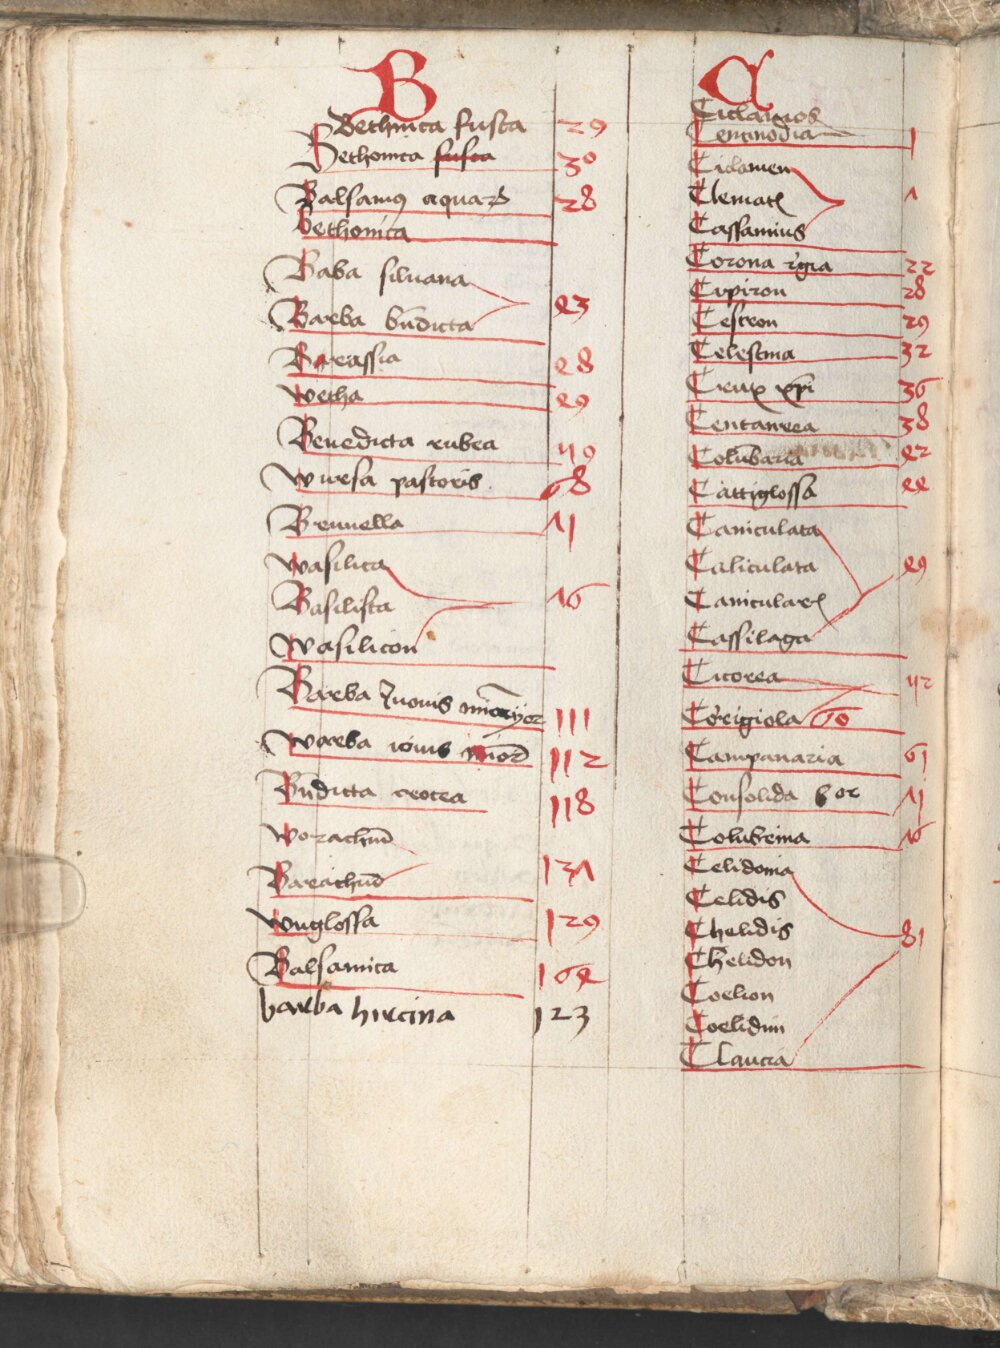 B
Bethnica fusca 29
Bethonica fusca 30
Balsamus aquar 28
bethonica
Baba siluana
Barba bndicta 43
Barassia 48
Wetha 49
Benedicta rubea 50
Wursa pastoris 68
Brunella 71
Wasilica
Basilista 76
Wasilicon
Barba Juouis maior 111
Warba iouis minor 112
Bndicta crocea 118
Worachnd
Barachnd 137
Wuglossa 129
Balsamica 164
barba hircina 123
C
Ciclaminos
Centinodia 1
Ciclamen
Clemat 7
Cassamius
Corona rgia 22
Cipiron 28
Cestron 29
Celestina 32
Crux xpi 36
Centaurea 38
Colubaria 42
Cattiglossa 44
Caniculata
Caliculata 49
Canicular
Cassilaga
Cicorea 52
Corigiola 60
Campanaria 61
Consolida bor 71
Colubrina 76
Celidonia
Celidis
Chelidis 81
Chelidon
Coelion
Coelidun
Claucia